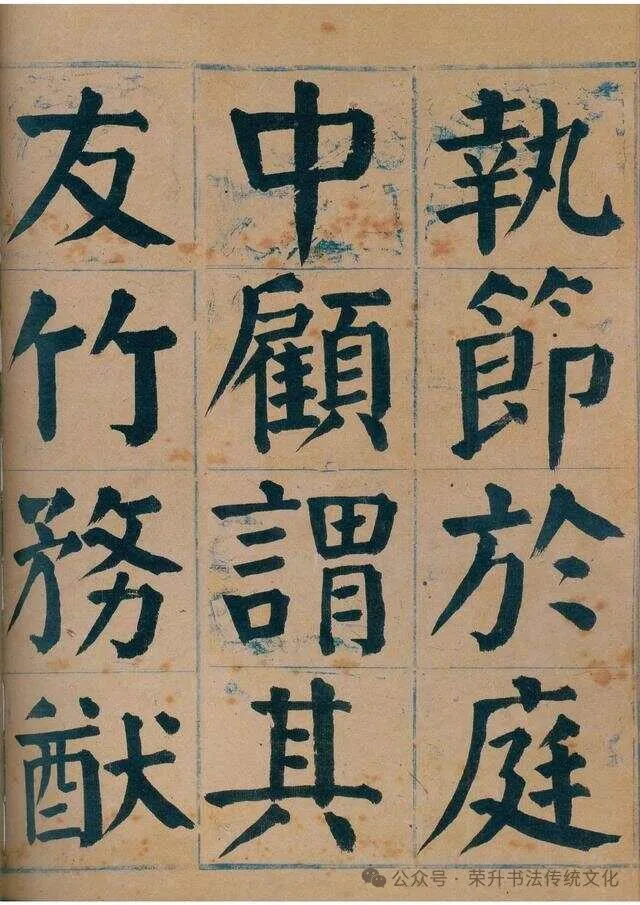 執節於庭
中顧謂其
友竹務猷
公众号·荣升书法传统文化